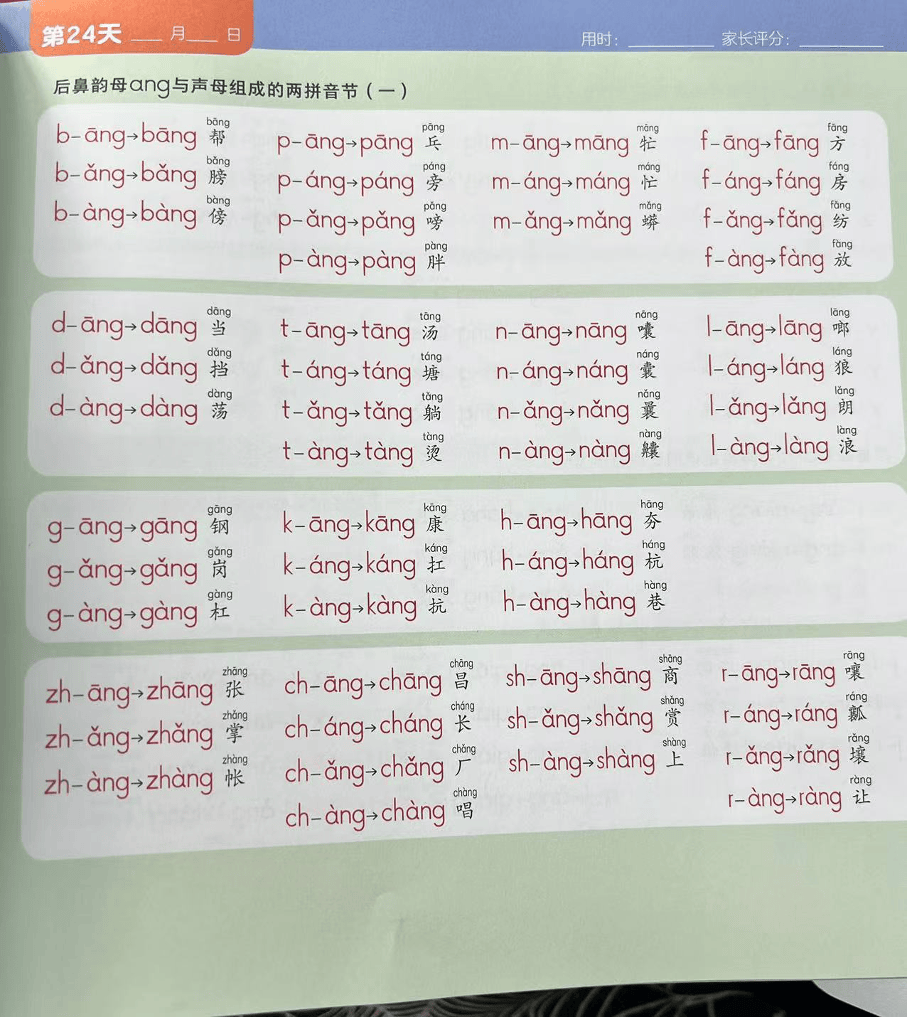 第24天 ____ 月____ 日
用时：________ 家长评分：________
后鼻韵母ang与声母组成的两拼音节（一）
b-āng→bāng 帮 bāng
b-ǎng→bǎng 膀 bǎng
b-àng→bàng 傍 bàng
p-āng→pāng 乓 pāng
p-áng→páng 旁 páng
p-ǎng→pǎng 嗙 pǎng
p-àng→pàng 胖 pàng
m-āng→māng 牤 māng
m-áng→máng 忙 máng
m-ǎng→mǎng 蟒 mǎng
f-āng→fāng 方 fāng
f-áng→fáng 房 fáng
f-ǎng→fǎng 纺 fǎng
f-àng→fàng 放 fàng
d-āng→dāng 当 dāng
d-ǎng→dǎng 挡 dǎng
d-àng→dàng 荡 dàng
t-āng→tāng 汤 tāng
t-áng→táng 塘 táng
t-ǎng→tǎng 躺 tǎng
t-àng→tàng 烫 tàng
n-āng→nāng 囔 nāng
n-áng→náng 囊 náng
n-ǎng→nǎng 曩 nǎng
n-àng→nàng 齉 nàng
l-āng→lāng 啷 lāng
l-áng→láng 狼 láng
l-ǎng→lǎng 朗 lǎng
l-àng→làng 浪 làng
g-āng→gāng 钢 gāng
g-ǎng→gǎng 岗 gǎng
g-àng→gàng 杠 gàng
k-āng→kāng 康 kāng
k-áng→káng 扛 káng
k-àng→kàng 抗 kàng
h-āng→hāng 夯 hāng
h-áng→háng 杭 háng
h-àng→hàng 巷 hàng
zh-āng→zhāng 张 zhāng
zh-ǎng→zhǎng 掌 zhǎng
zh-àng→zhàng 帐 zhàng
ch-āng→chāng 昌 chāng
ch-áng→cháng 长 cháng
ch-ǎng→chǎng 厂 chǎng
ch-àng→chàng 唱 chàng
sh-āng→shāng 商 shāng
sh-ǎng→shǎng 赏 shǎng
sh-àng→shàng 上 shàng
r-āng→rāng 嚷 rāng
r-áng→ráng 瓤 ráng
r-ǎng→rǎng 壤 rǎng
r-àng→ràng 让 ràng